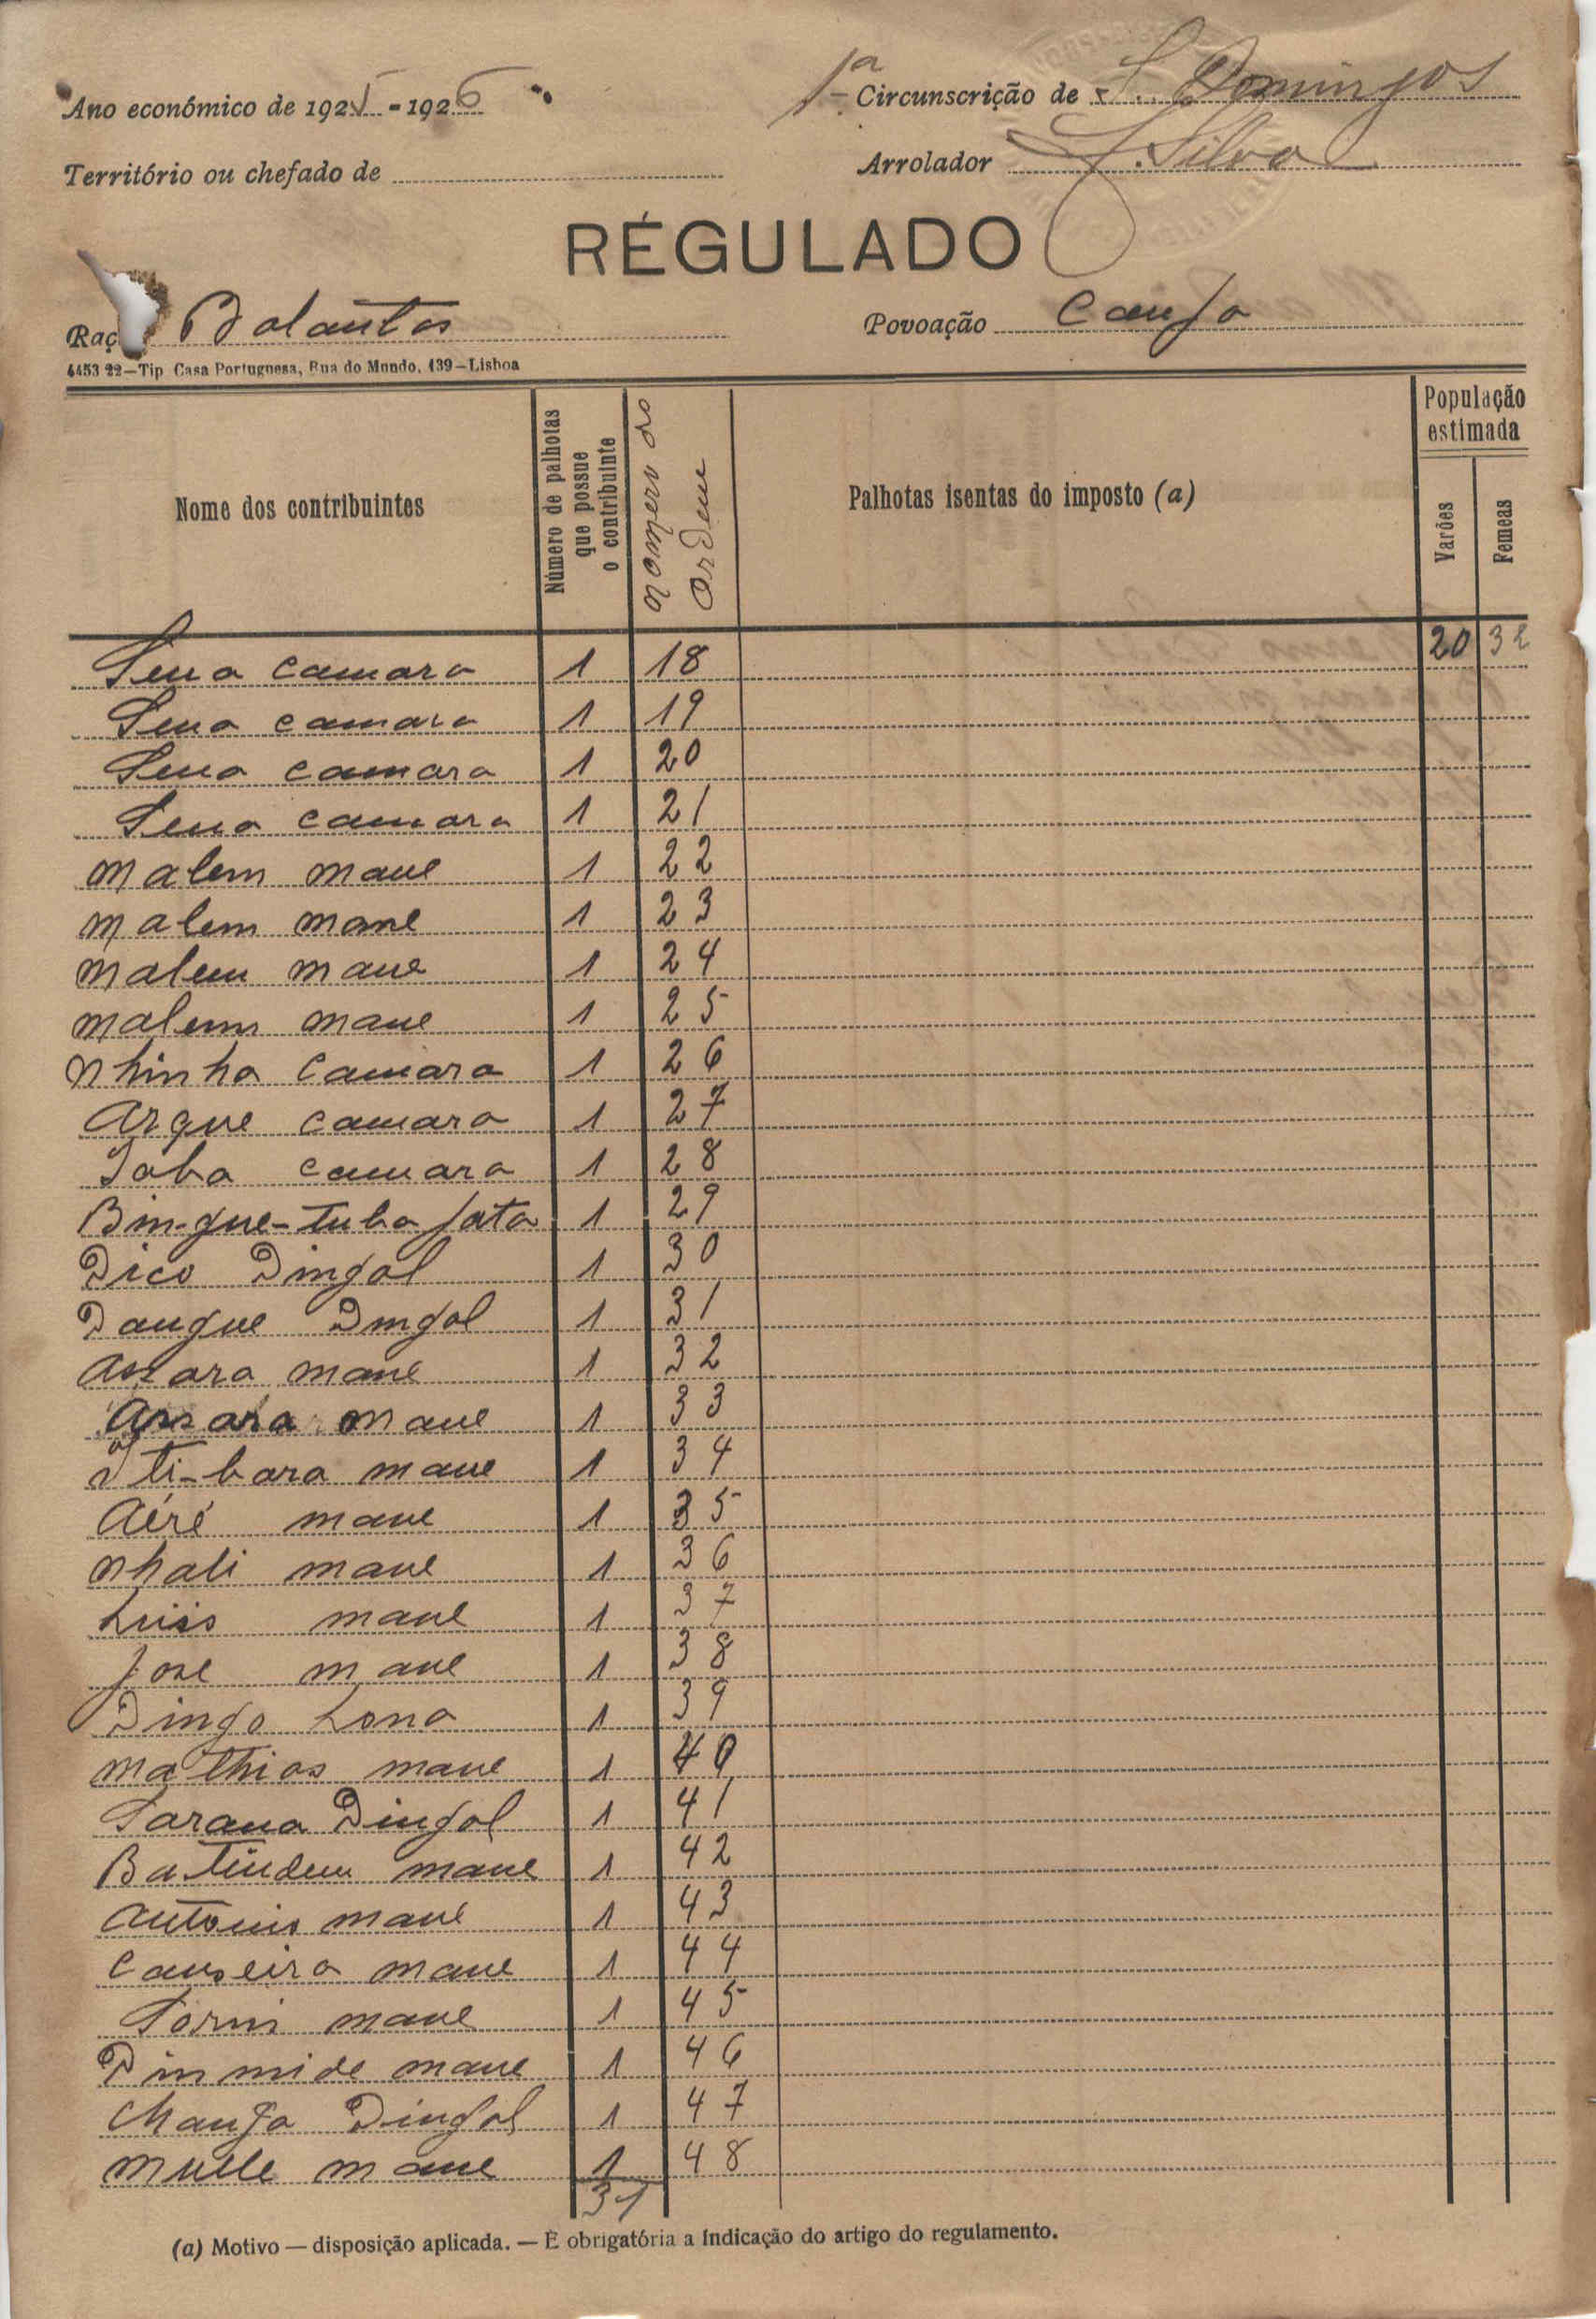 Ano económico de 1925-1926
1ª Circunscrição de S. Domingos
Território ou chefado de
Arrolador J. Silva
RÉGULADO
Raç Balantas
Povoação Canja
4453 22—Tip Casa Portuguesa, Rua do Mundo, 139—Lisboa
Nome dos contribuintes
Número de palhotas que possue o contribuinte
Número de Ordem
Palhotas isentas do imposto (a)
População estimada
Varões
Femeas
Sena camara 1 18 20 32
Sena camara 1 19
Sena camara 1 20
Sena camara 1 21
malem mane 1 22
malem mane 1 23
malem mane 1 24
malem mane 1 25
Nhinha camara 1 26
Arque camara 1 27
Joba camara 1 28
Bin-gue-tuba fata 1 29
Dico Dingal 1 30
Dangue Dingal 1 31
Assara mane 1 32
Assara mane 1 33
ti-bara mane 1 34
Aéré mane 1 35
Nhali mane 1 36
Luis mane 1 37
José mane 1 38
Dingo Lona 1 39
mathias mane 1 40
Sarana Dingal 1 41
Batindem mane 1 42
Antonio mané 1 43
Canseira mane 1 44
mane 1 45
Dinmide mane 1 46
Changa Dingal 1 47
mulle mane 1 48
31
(a) Motivo — disposição aplicada. — É obrigatória a indicação do artigo do regulamento.